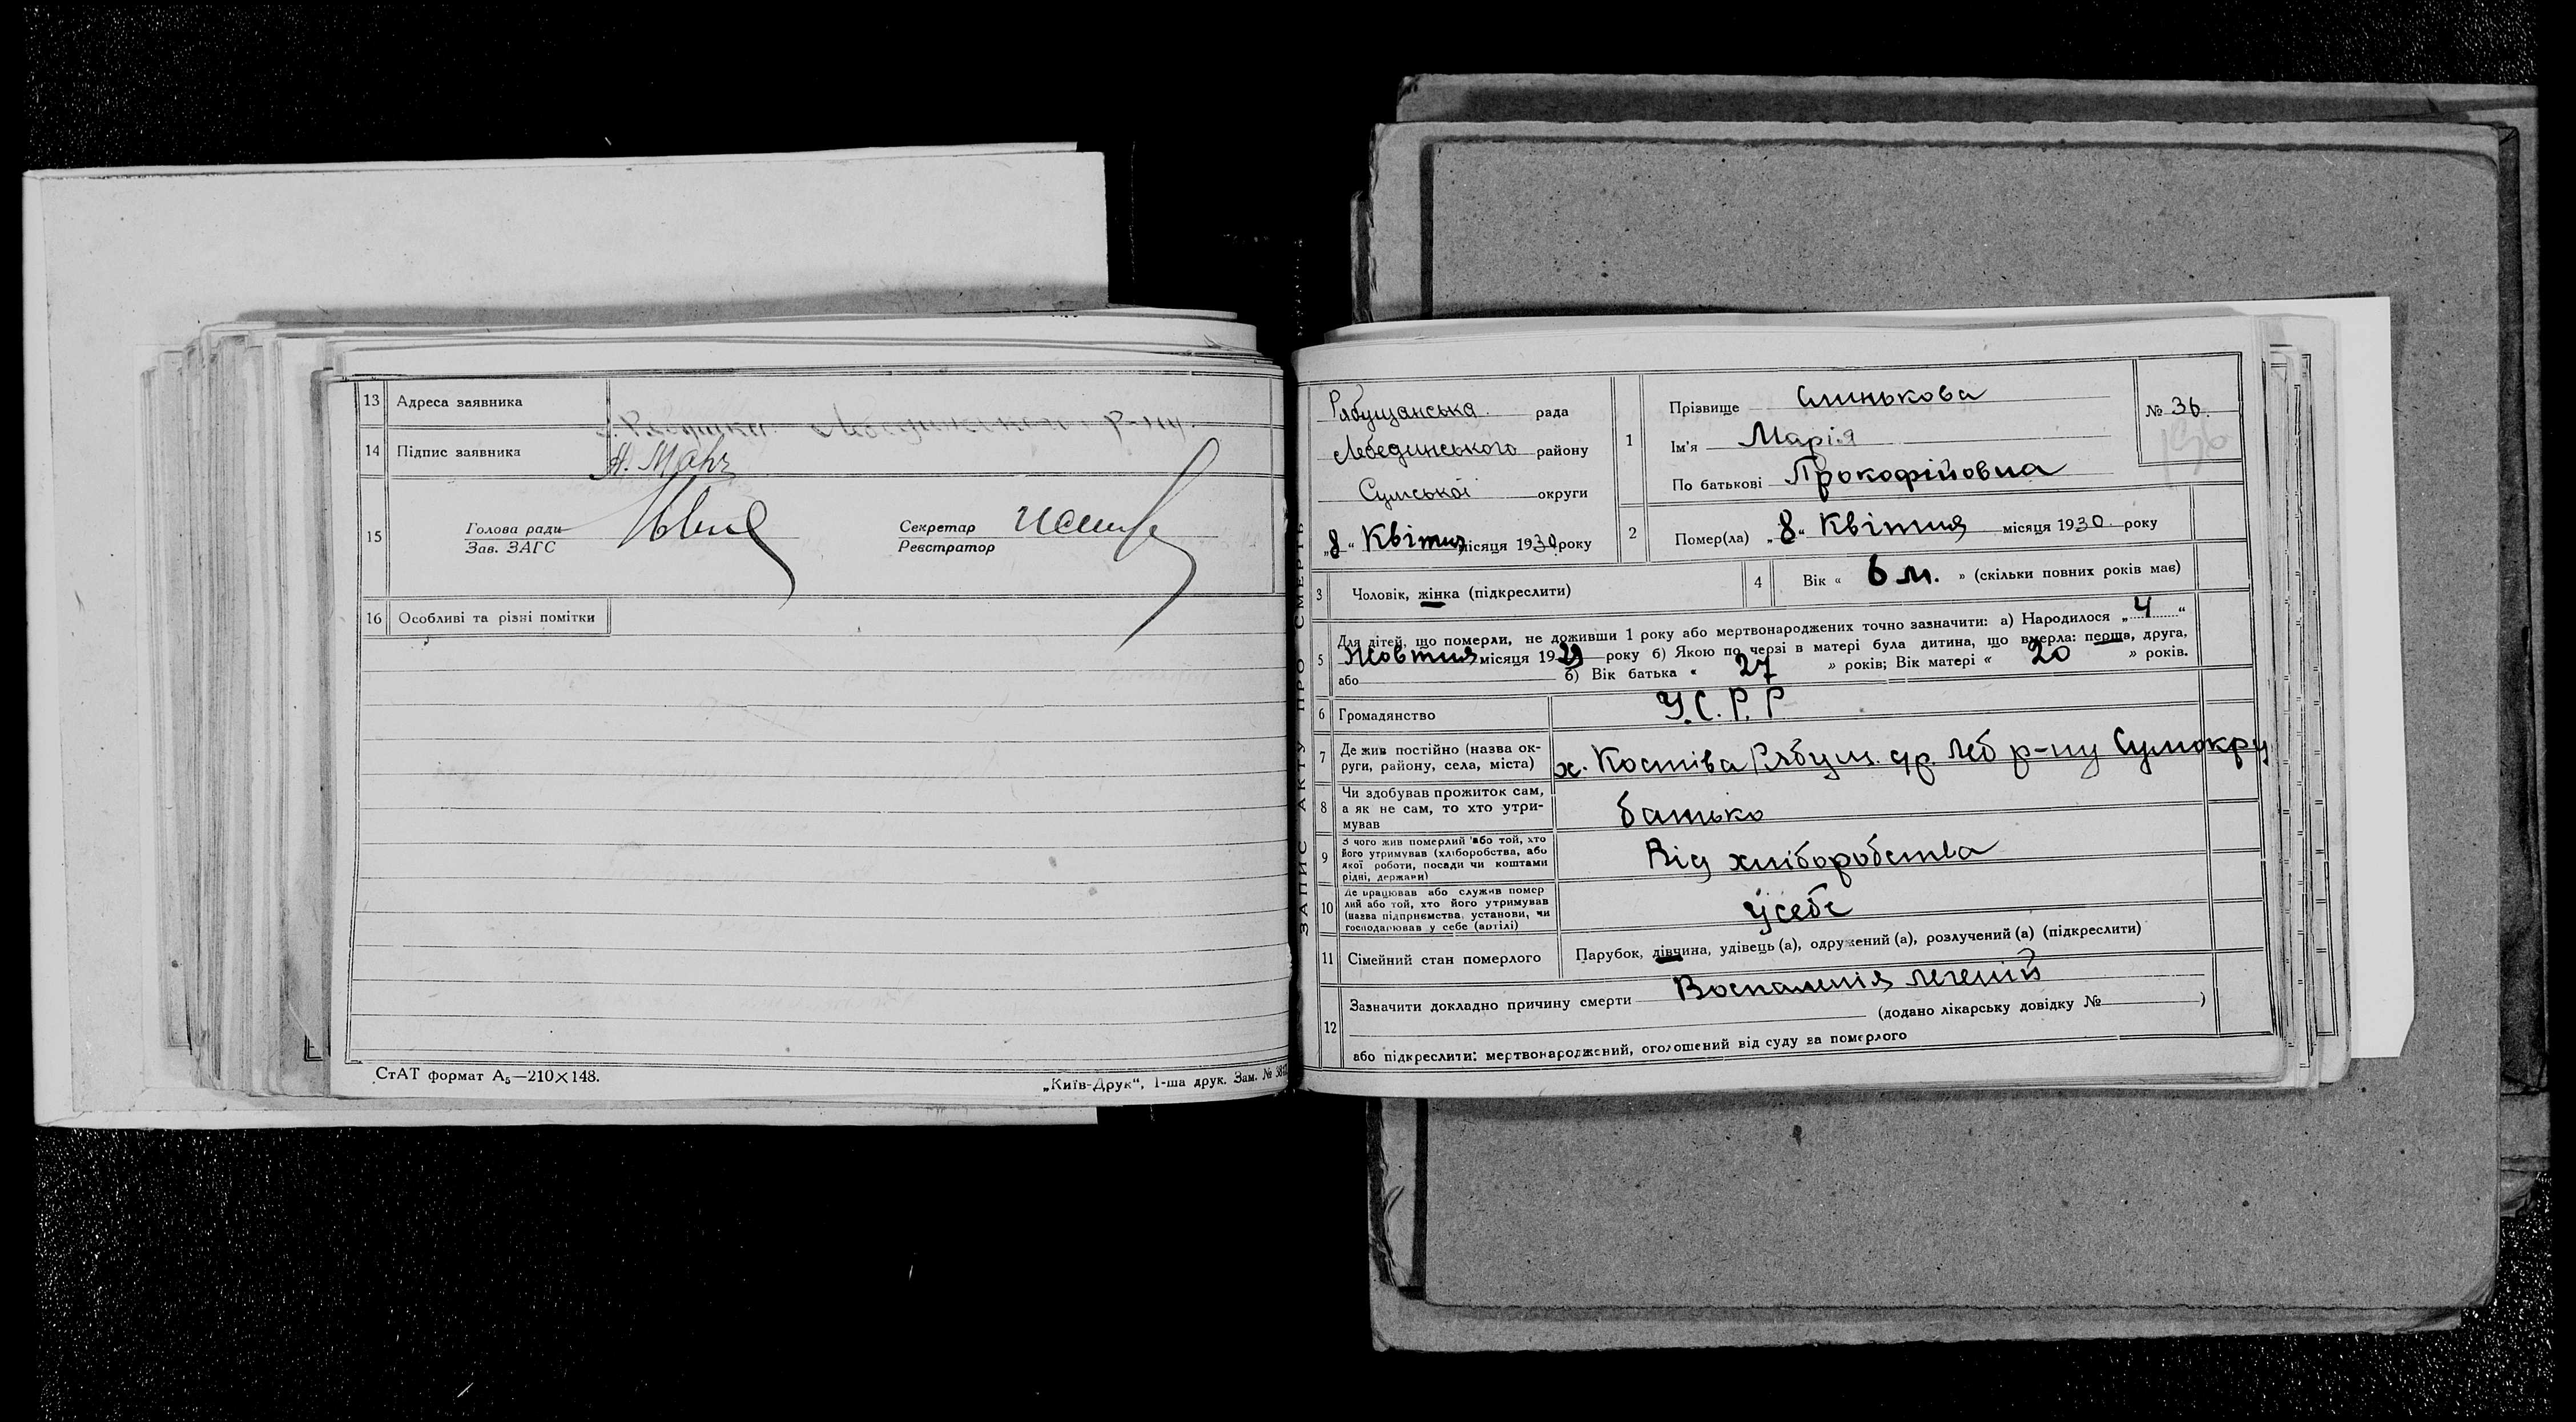 13 Адреса заявника с. Рябушки Лебединського р-ну.
14 Підпис заявника
15 Голова ради
Зав. ЗАГС
Секретар
Реєстратор
16 Особливі та різні помітки
СтАТ формат А₅—210×148.
„Київ-Друк“, 1-ша друк. Зам. №
ЗАПИС АКТУ ПРО СМЕРТЬ
Рябущанська рада
Лебединського району
Сумської округи
„8“ Квітня місяця 1930 року
1 Прізвище Слинькова
Ім'я Марія
По батькові Прокофійовна
№ 36.
2 Помер(ла) „8“ Квітня місяця 1930 року
3 Чоловік, жінка (підкреслити)
4 Вік « 6 м. » (скільки повних років має)
5 Для дітей, що померли, не доживши 1 року або мертвонароджених точно зазначити: а) Народилося „4“
Жовтня місяця 1929 року б) Якою по черзі в матері була дитина, що вмерла: перша, друга,
або б) Вік батька « 27 » років; Вік матері « 20 » років.
6 Громадянство У.С.Р.Р
7 Де жив постійно (назва ок-
руги, району, села, міста) х. Костіва Рябуш. с/р. Леб р-ну Сумокру
8 Чи здобував прожиток сам,
а як не сам, то хто утри-
мував батько
9 З чого жив померлий або той, хто
його утримував (хліборобства, або
якої роботи, посади чи коштами
рідні, держави) Від хліборобства
10 Де працював або служив помер
лий або той, хто його утримував
(назва підприємства, установи, чи
господарював у себе (артілі) У себе
11 Сімейний стан померлого Парубок, дівчина, удівець (а), одружений (а), розлучений (а) (підкреслити)
12 Зазначити докладно причину смерти Воспаленія легеній
(додано лікарську довідку № )
або підкреслити: мертвонароджений, оголошений від суду за померлого